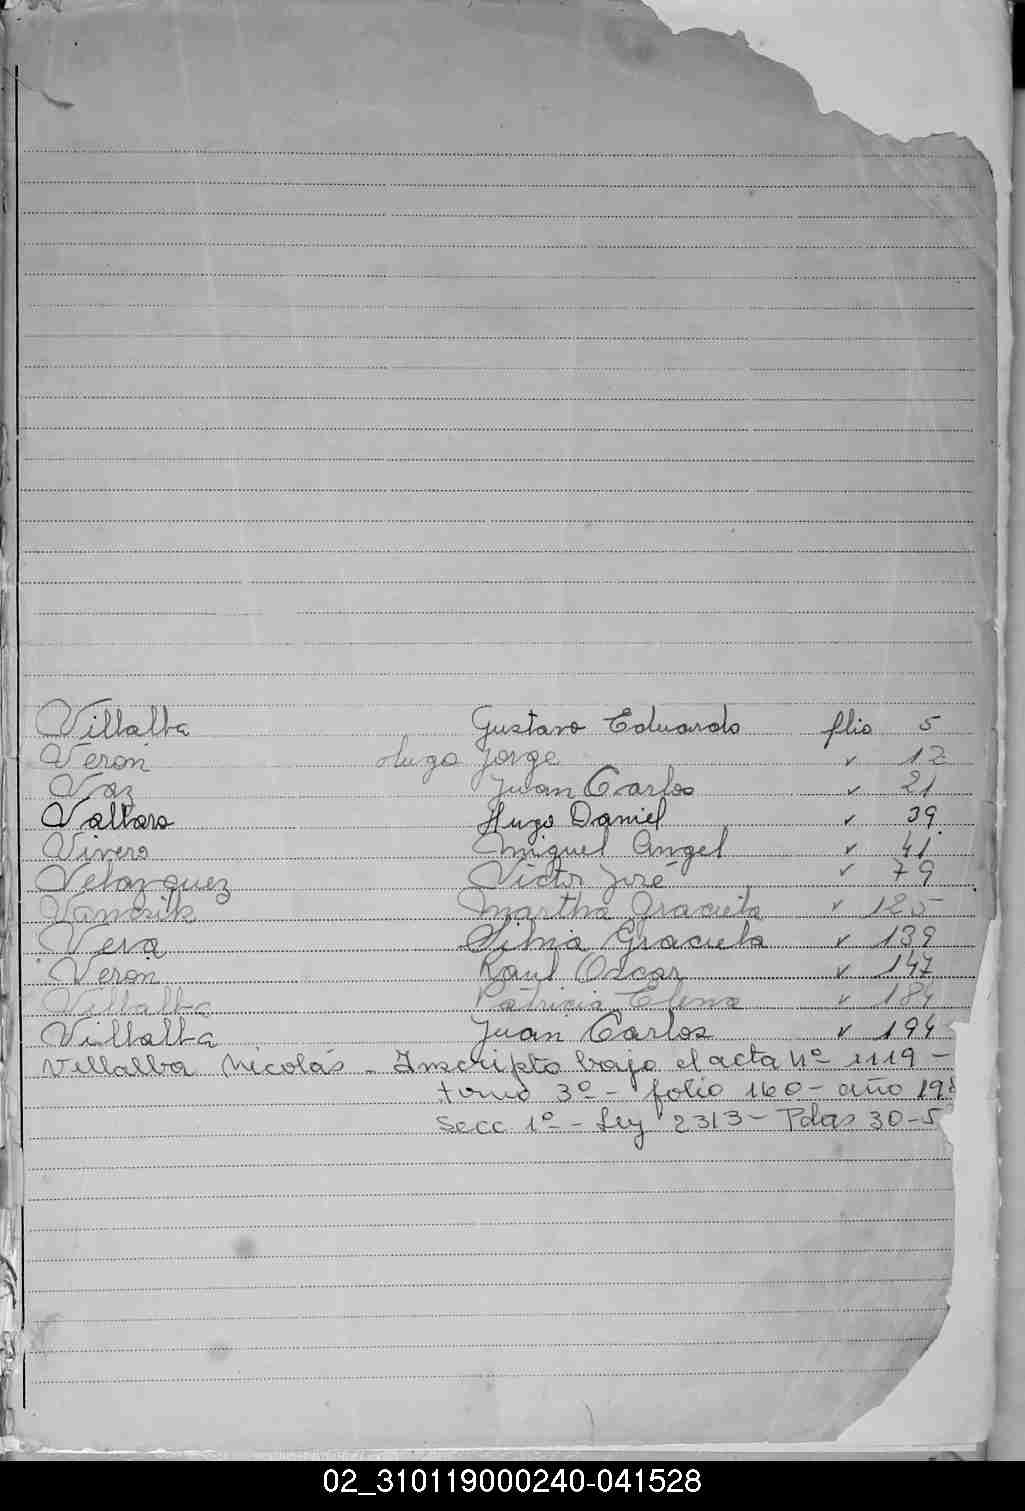 Villalba Gustavo Eduardo flio 5
Verón Hugo Jorge " 12
Vaz Juan Carlos " 21
Vallaro Hugo Daniel " 39
Vivero Miguel Angel " 41
Velazquez Victor José " 79
Martha Graciela " 125
Vera Silvia Graciela " 139
Veron Raul Oscar " 147
Villalba Patricia Elena " 184
Villalba Juan Carlos " 194
Villalba Nicolás - Inscripto bajo el acta nº 1119 -
tomo 3º - folio 160 - año 19
Secc 1º - Ley 2313 - Pdas 30-5
02_310119000240-041528